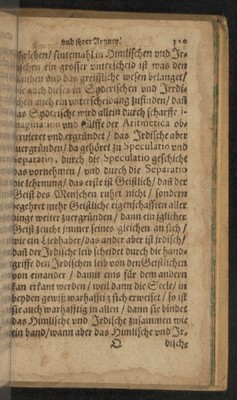 und ihrer Artzney.
schrieben / sintemahl in Himlischen und Ir-
dischen ein grosser unterscheid ist was den
glauben und das greiffliche wesen belanget /
wie auch dieses in Syderischen und Irrdi-
schen auch ein unterscheidung zufinden / daß
das Syderische wird allein durch scharffe i-
magination und hülffe der Aritmetica ob-
serviret und ergründet / das Irdische aber
zuergründen / da gehöret zu Speculatio und
Separatio, durch die Speculatio geschicht
das vornehmen / und durch die Separatio
die lehrnung / das erste ist Geistlich / daß der
Geist des Menschen ruhet nicht / sondern
begehret mehr Geistliche eigenschafften aller
dinge weiter zuergründen / dann ein jglicher
Geist zeucht immer seines gleichen an sich /
wie ein Liebhaber / das ander aber ist jrdisch /
daß der Irdische leib scheidet durch die hand-
griffe den Irdischen leib von den Geistlichen
von einander / damit eins für dem andern
kan erkant werden / weil dann die Seele / in
beyden gewiß warhafftig sich erweiset / so ist
sie auch warhafftig in allen / dann sie bindet
das Himlische und Irdische zusammen wie
ein band / wann aber das Himlische und Ir-
dische